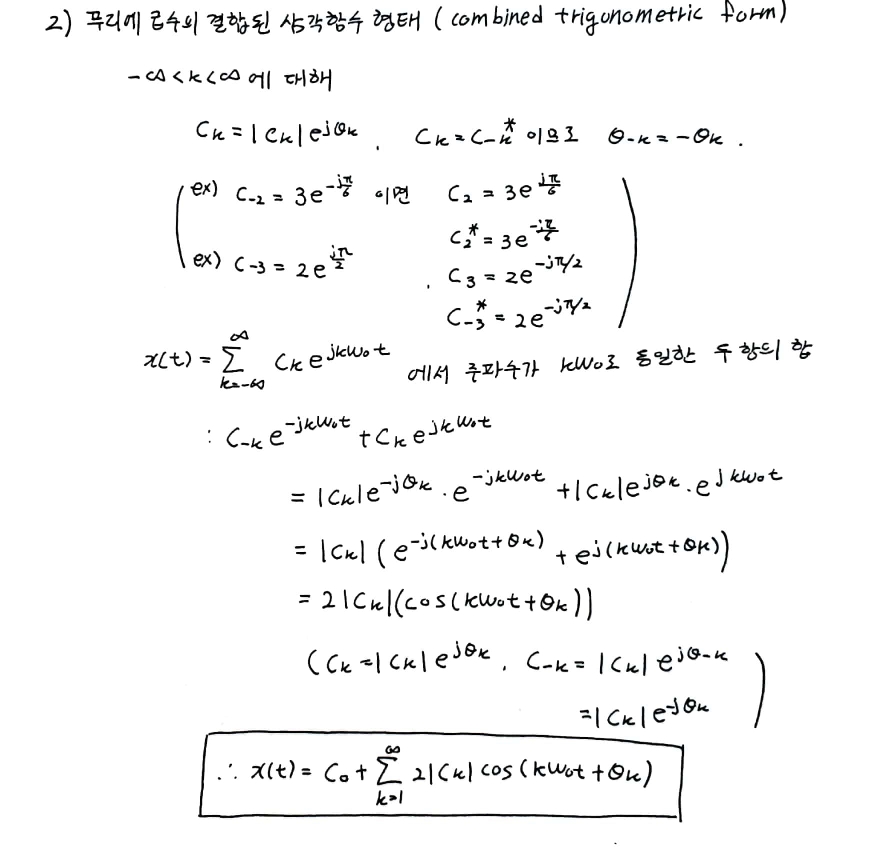 2) 푸리에 급수의 결합된 삼각함수 형태 ( combined trigonometric form)
-∞<k<∞ 에 대해
Cₖ = |Cₖ|e^{jθₖ} , Cₖ = C₋ₖ* 이므로 θ₋ₖ = -θₖ .
ex) C₋₂ = 3e^{-jπ/6} 이면 C₂ = 3e^{jπ/6}
C₂* = 3e^{-jπ/6}
ex) C₋₃ = 2e^{jπ/2} , C₃ = 2e^{-jπ/2}
C₋₃* = 2e^{-jπ/2}
x(t) = Σ_{k=-∞}^{∞} Cₖ e^{jkω₀t} 에서 주파수가 kω₀로 동일한 두 항의 합
: C₋ₖ e^{-jkω₀t} + Cₖ e^{jkω₀t}
= |Cₖ|e^{-jθₖ} · e^{-jkω₀t} + |Cₖ|e^{jθₖ} · e^{jkω₀t}
= |Cₖ| ( e^{-j(kω₀t+θₖ)} + e^{j(kω₀t+θₖ)} )
= 2|Cₖ|(cos(kω₀t+θₖ))
( Cₖ = |Cₖ|e^{jθₖ} , C₋ₖ = |Cₖ| e^{jθ₋ₖ}
= |Cₖ|e^{-jθₖ} )
∴ x(t) = C₀ + Σ_{k=1}^{∞} 2|Cₖ| cos (kω₀t + θₖ)